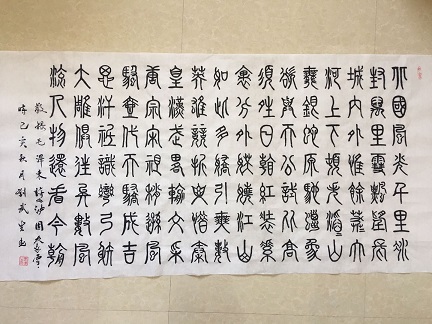 北國風光千里冰
封萬里雪飄望長
城內外惟餘莽〻大
河上下頓失滔〻山
舞銀蛇原馳蠟象
欲與天公試比高
須晴日看紅裝素
裹分外妖嬈江山
如此多嬌引無數
英雄競折腰惜秦
皇漢武略輸文采
唐宗宋祖稍遜風
騷一代天驕成吉
思汗只識彎弓射
大雕俱往矣數風
流人物還看今朝
敬錄毛澤東詩詞沁園春雪
時己亥秋月劉武